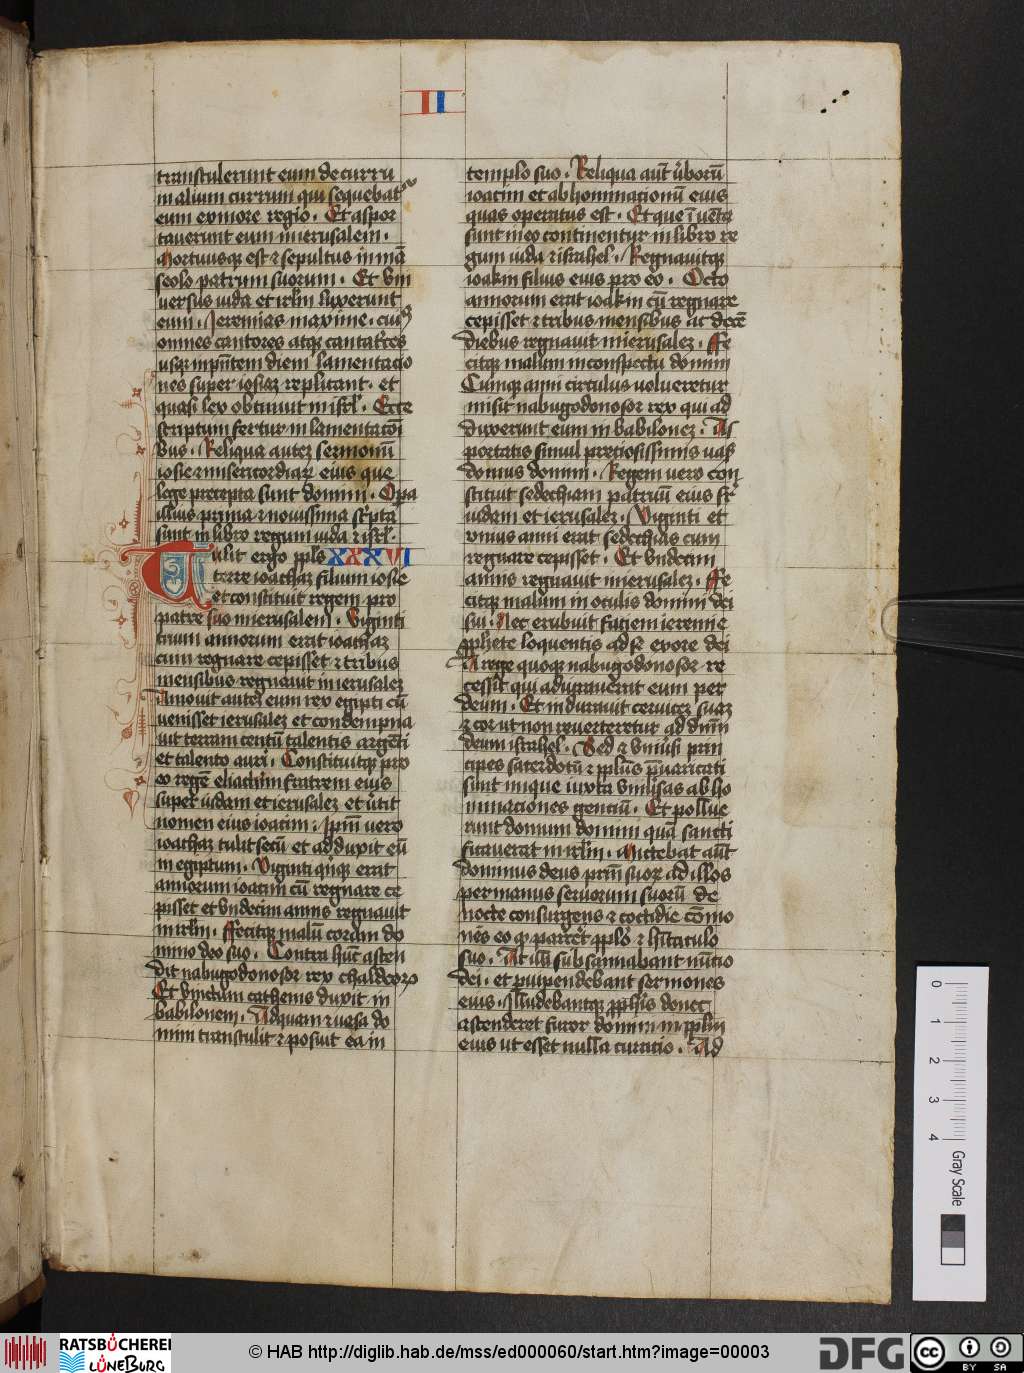 II
transtulerunt eum de curru
in alium currum qui sequebat᷑
eum et more regio. Et aspor
tauerunt eum in ierusalem.
Mortuusqꝫ est ⁊ sepultus in mā
seolo patrum suorum. Et vni
uersus iuda et irlm̄ luxerunt
eum. Jeremias maxime. cuiꝰ
omnes cantores atqꝫ cantat᷑ces
usqꝫ in pn̄tem diem lamentacio
nes super iosiaꝫ replicant. et
quasi lex obtinuit in isrl̄. Ecce
scriptum fertur in lamentacōi
bus. Reliqua auteꝫ sermonū
iosie ⁊ misericordiaꝝ eius que
lege precepta sunt domini. Opa
illius prima ⁊ nouissima sc̄pta
sunt in libro regum iuda ⁊ isrl̄.
Tulit ergo ppl̄s XXXVI
terre ioachaz filium iosie
et constituit regem pro
patre suo in ierusalem. Viginti
trium annorum erat ioachaz
cum regnare cepisset ⁊ tribus
mensibus regnauit in ierusaleꝫ
Amouit auteꝫ eum rex egipti cū
venisset ierusaleꝫ et condempna
uit terram centū talentis argēti
et talento auri. Constituitqꝫ pro
eo regē eliachim fratrem eius
super iudam et ierusaleꝫ et v̄tit
nomen eius ioacim. Ipm̄ vero
ioachaz tulit secū et adduxit eū
in egiptum. Viginti quīqꝫ erat
annorum ioacim cū regnare ce
pisset et vndecim annis regnauit
in irlm̄. Fecitqꝫ malū coram do
mino deo suo. Contra hūc ascen
dit nabugodonosor rex chaldeoꝝ
Et vinctum cathenis duxit in
babilonem. Ad quam ⁊ uasa do
mini transtulit ⁊ posuit ea in
templo suo. Reliqua aūt v̄borū
ioacim et abhominacionū eius
quas operatus est. Et que īuēta
sunt in eo continentur in libro re
gum iuda ⁊ israhel. Regnauitqꝫ
ioakin filius eius pro eo. Octo
annorum erat ioakin cū regnare
cepisset ⁊ tribus mensibus ac decē
diebus regnauit in ierusaleꝫ. Fe
citqꝫ malum in conspectu domini
Cumqꝫ anni circulus uolueretur
misit nabugodonosor rex qui ad
duxerunt eum in babiloneꝫ. As
portatis simul preciosissimis uas᷑
domus domini. Regem vero con
stituit sedechiam patruū eius sr᷑
iudam et ierusaleꝫ. Viginti et
vnius anni erat sedechias cum
regnare cepisset. Et vndecim
annis regnauit in ierusaleꝫ. Fe
citqꝫ malum in oculis domini dei
sui. Nec erubuit faciem ieremie
ꝓphete loquentis ad se ex ore dei
A rege quoqꝫ nabugodonosor re
cessit qui adiurauerat eum per
deum. Et indurauit ceruiceꝫ suaꝫ
⁊ cor ut non reuerteretur ad dn̄m
deum israhel. Sed ⁊ vniu̾si prin
cipes sacerdotū ⁊ ppl̄us p̄uaricati
sunt inique iuxta vniu̾sas abho
minaciones gentiū. Et pollue
runt domum domini quā sancti
ficauerat in irlm̄. Mictebat aūt
dominus deus prm̄ suoꝝ ad illos
per manus seruorum suorū de
nocte consurgens ⁊ cottidie cōmo
nēs eo ꝙ parc̄ret ppl̄o ⁊ hītaculo
suo. At illi subsannabant nūtio
dei. et p̲uipendebant sermones
eius. Illudebantqꝫ ꝓphis donec
ascenderet furor domini in pplm̄
eius ut esset nulla curatio. Ad
0
1
2
3
4
Gray Scale
RATSBÜCHEREI
LÜNEBURG
© HAB http://diglib.hab.de/mss/ed000060/start.htm?image=00003
DFG
cc
BY SA